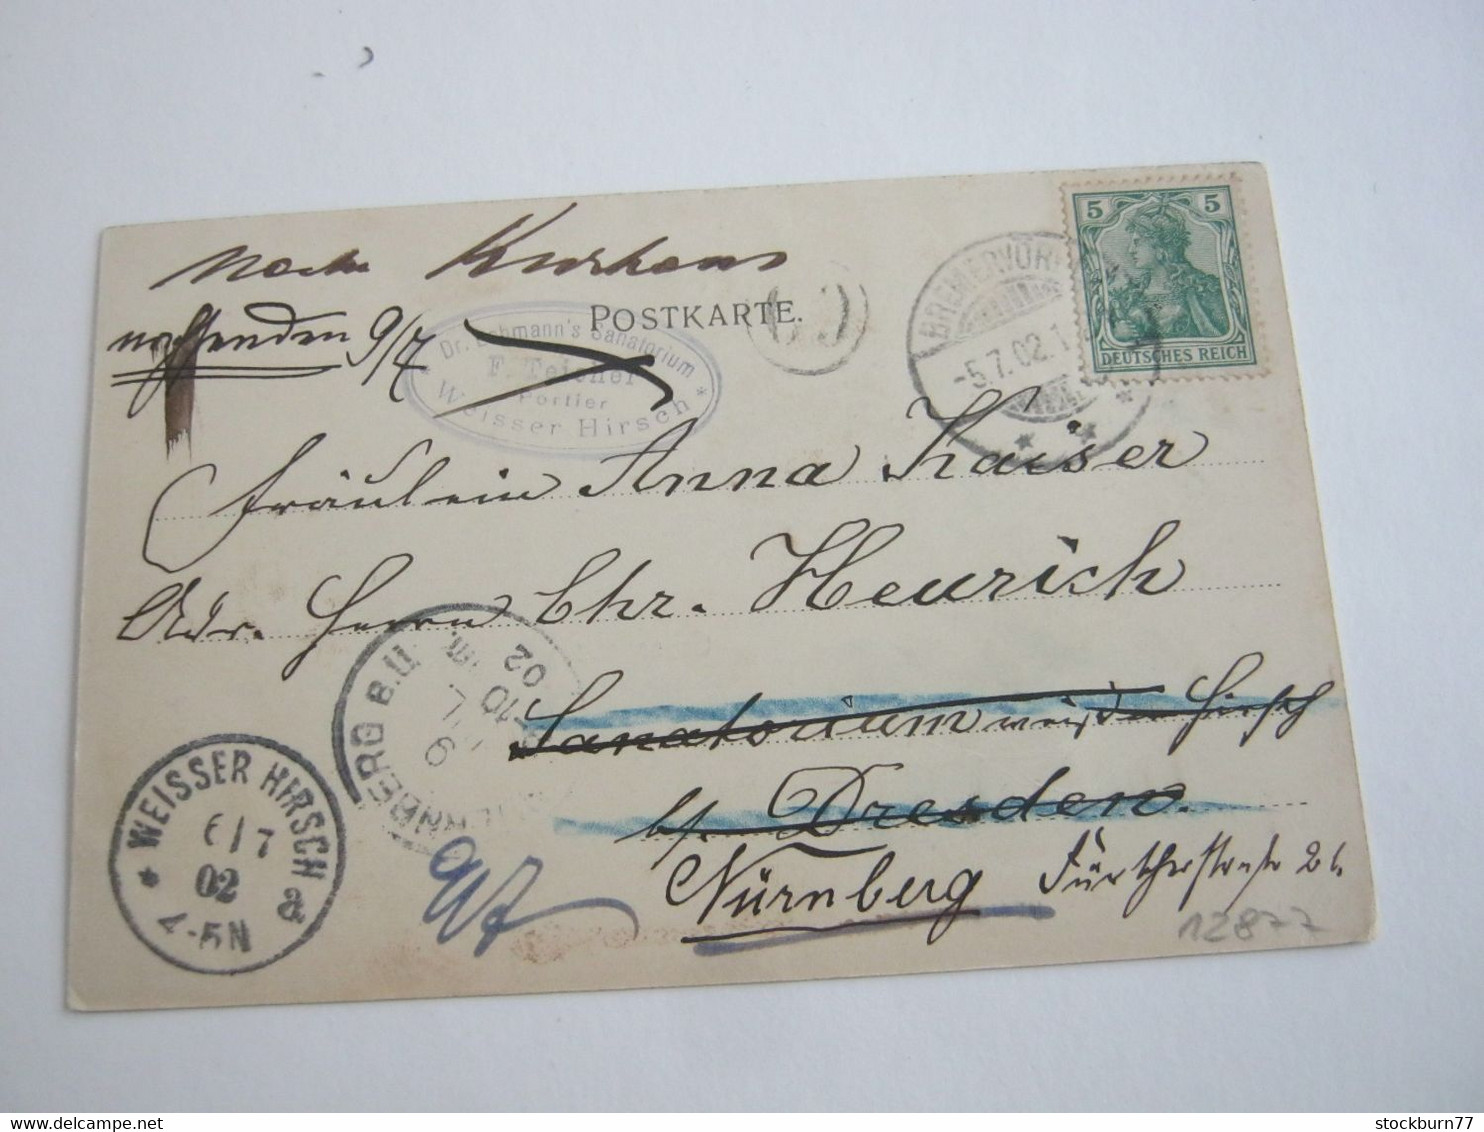 Nach Kurhaus
nachsenden 9/7
POSTKARTE.
Dr. Lahmann's Sanatorium
F. Teicher
Portier
Weisser Hirsch *
BREMERVÖR
-5.7.02.1
5 5
DEUTSCHES REICH
Fräulein Anna Kaiser
Adr. Herrn Chr. Heurich
Sanatorium weißer Hirsch
b/. Dresden.
Nürnberg Fürtherstraße
NBERG B.U.
9 7
-10
02
* WEISSER HIRSCH a
6/7
02
4-5N
12877
stockburn77